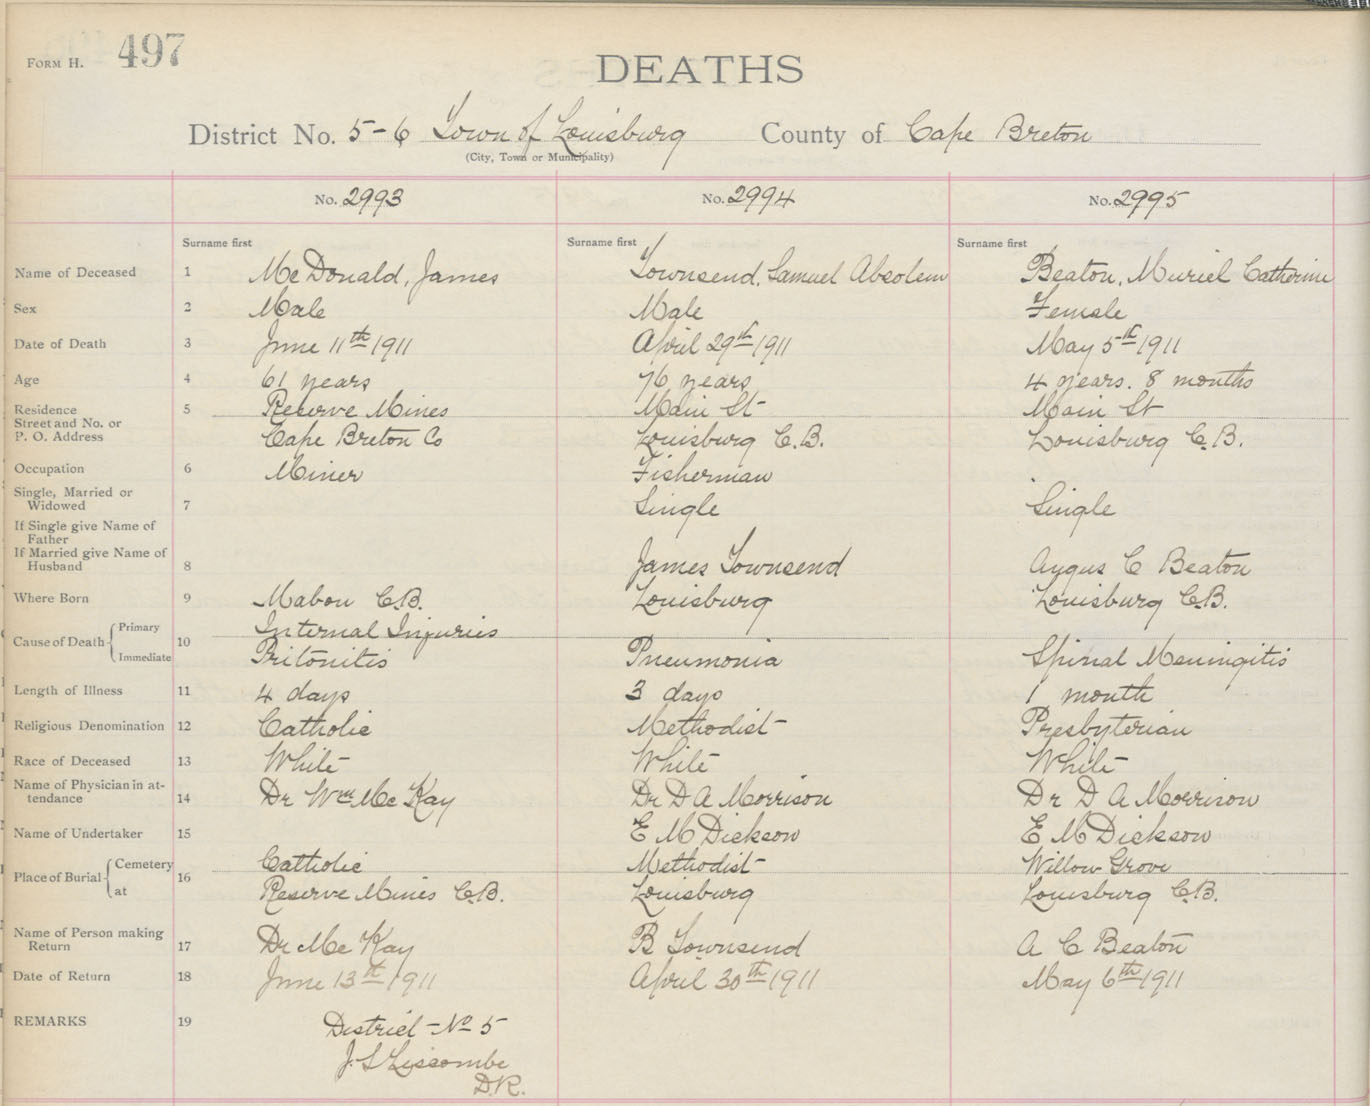 FORM H. 497
DEATHS
District No. 5-6 Town of Louisburg County of Cape Breton
(City, Town or Municipality)
No. 2993 No. 2994 No. 2995
Surname first Surname first Surname first
Name of Deceased 1 McDonald, James Townsend, Samuel Absolem Beaton, Muriel Catherine
Sex 2 Male Male Female
Date of Death 3 June 11th 1911 April 29th 1911 May 5th 1911
Age 4 61 years 76 years 4 years. 8 months
Residence 5 Reserve Mines Main St Main St
Street and No. or
P. O. Address Cape Breton Co Louisburg C.B. Louisburg C.B.
Occupation 6 Miner Fisherman
Single, Married or
Widowed 7 Single Single
If Single give Name of
Father
If Married give Name of
Husband 8 James Townsend Angus C Beaton
Where Born 9 Mabou C.B. Louisburg Louisburg C.B.
Cause of Death Primary 10 Internal Injuries
Immediate Pritonitis Pneumonia Spinal Meningitis
Length of Illness 11 4 days 3 days 1 month
Religious Denomination 12 Catholic Methodist Presbyterian
Race of Deceased 13 White White White
Name of Physician in at-
tendance 14 Dr Wm McKay Dr D A Morrison Dr D A Morrison
Name of Undertaker 15 E M Dickson E M Dickson
Place of Burial Cemetery 16 Catholic Methodist Willow Grove
at Reserve Mines C.B. Louisburg Louisburg C.B.
Name of Person making
Return 17 Dr McKay B Townsend A C Beaton
Date of Return 18 June 13th 1911 April 30th 1911 May 6th 1911
REMARKS 19 District No 5
J. S Liscombe
D.R.